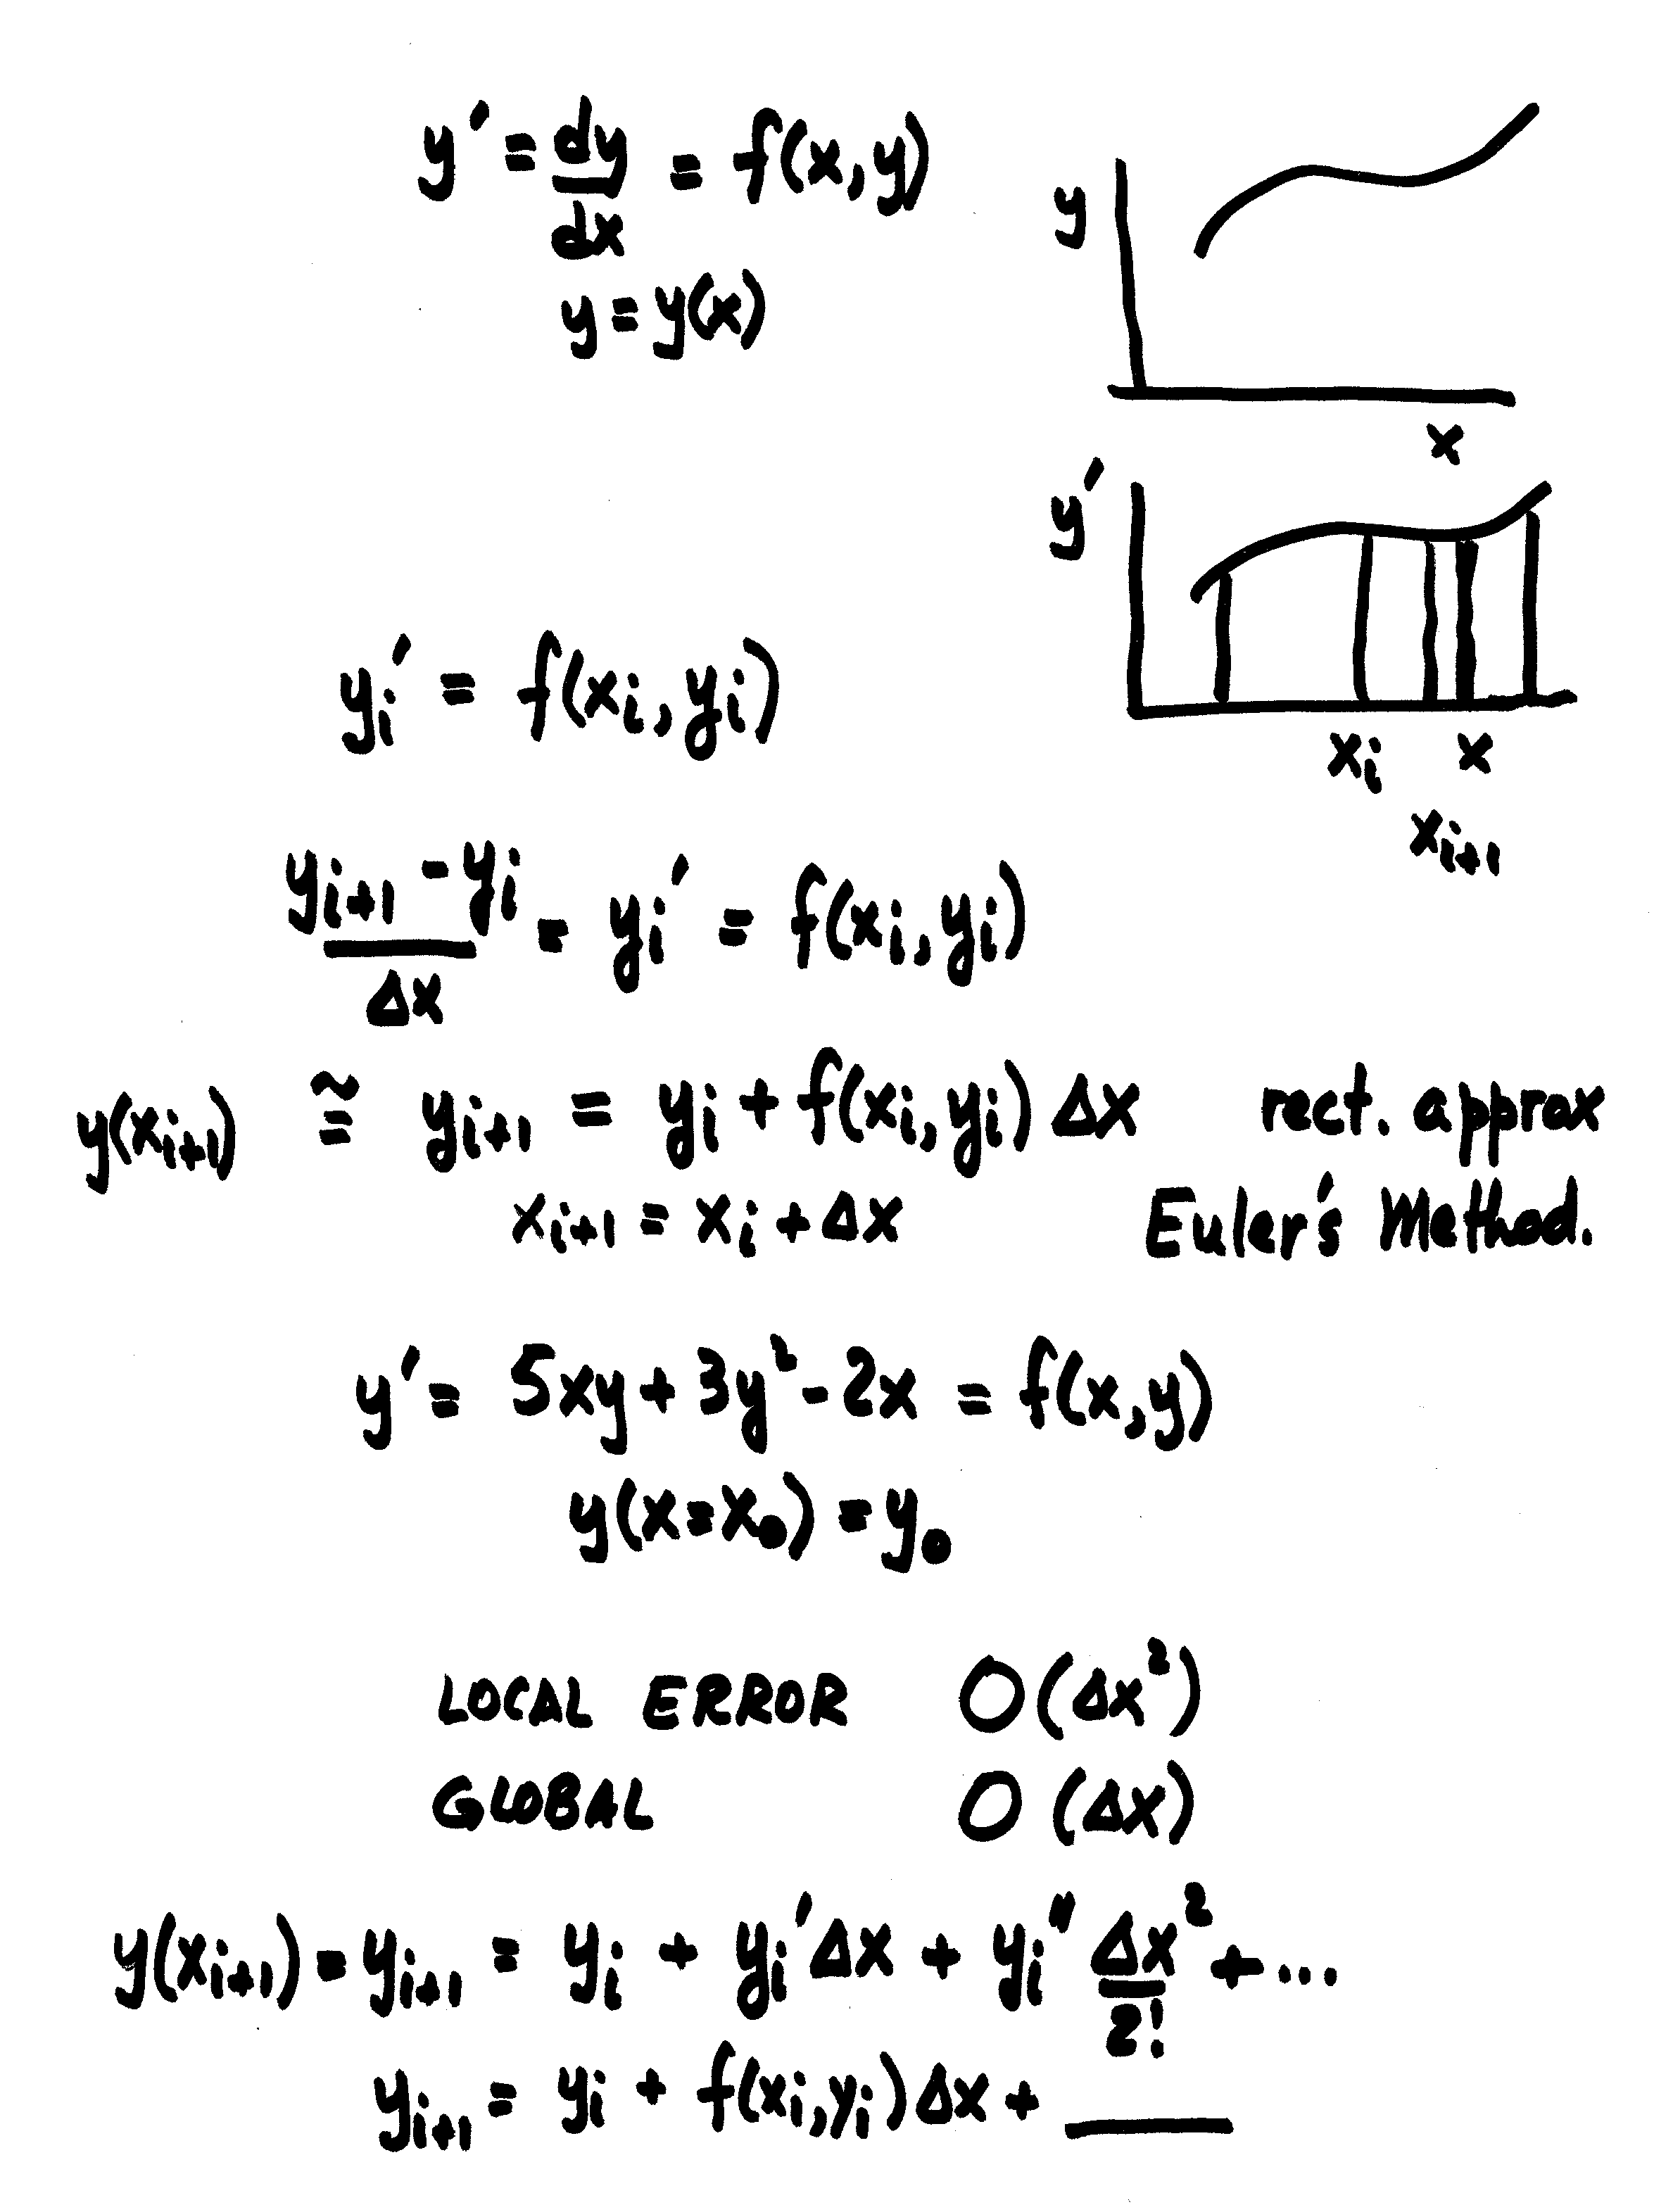 y' = dy/dx = f(x,y)
y = y(x)
y
x
y'
x_i x
x_{i+1}
y_i' = f(x_i, y_i)
(y_{i+1} - y_i)/Δx = y_i' = f(x_i, y_i)
y(x_{i+1}) ≅ y_{i+1} = y_i + f(x_i, y_i) Δx rect. approx
x_{i+1} = x_i + Δx Euler's Method.
y' = 5xy + 3y² - 2x = f(x,y)
y(x=x_0) = y_0
LOCAL ERROR O(Δx²)
GLOBAL O(Δx)
y(x_{i+1}) = y_{i+1} = y_i + y_i'Δx + y_i'' Δx²/2! + ...
y_{i+1} = y_i + f(x_i, y_i)Δx + ____